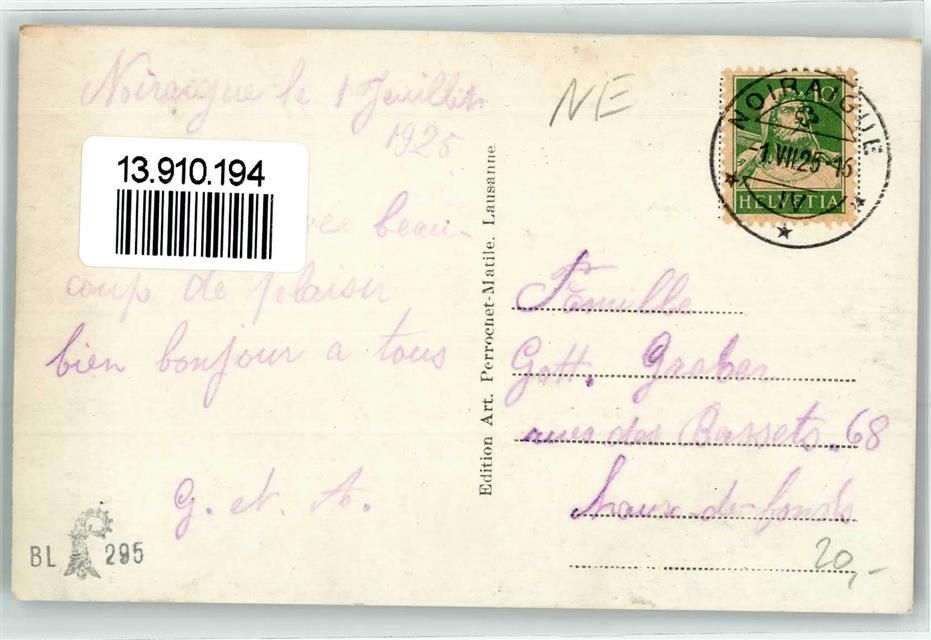 Noiraigue le 1 Juillet
1925
13.910.194
avec beau-
coup de plaisir
bien bonjour a tous
G. et A.
BL 295
NE
Edition Art. Perrochet-Matile, Lausanne
10
HELVETIA
NOIRAIGUE
-1.VII.25-16
Famille
Gott. Graber
rue des Bassets. 68
Chaux-de-fonds
20,-